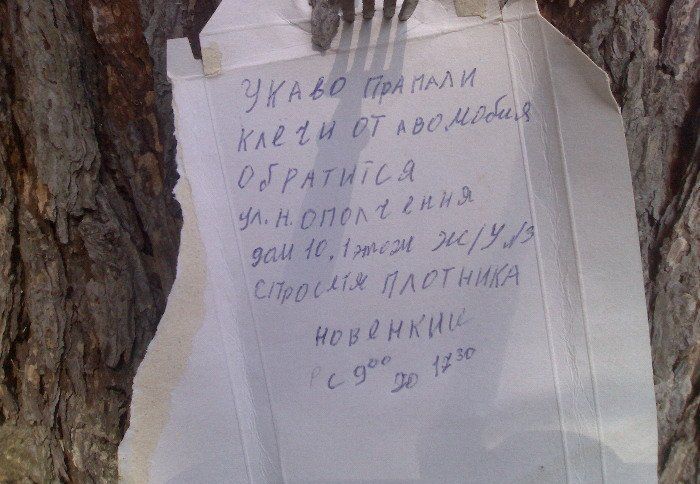 УКАВО ПРАПАЛИ
КЛЕЧИ ОТ АВОМОбИЯ
ОбРАТИТСЯ
ул. Н. ОПОЛЧЕНИЯ
дом 10. 1 этаж Ж/У №3
СПРОСИТЯ ПЛОТНИКА
НОВЕНКИЙ
С 9⁰⁰ до 17³⁰